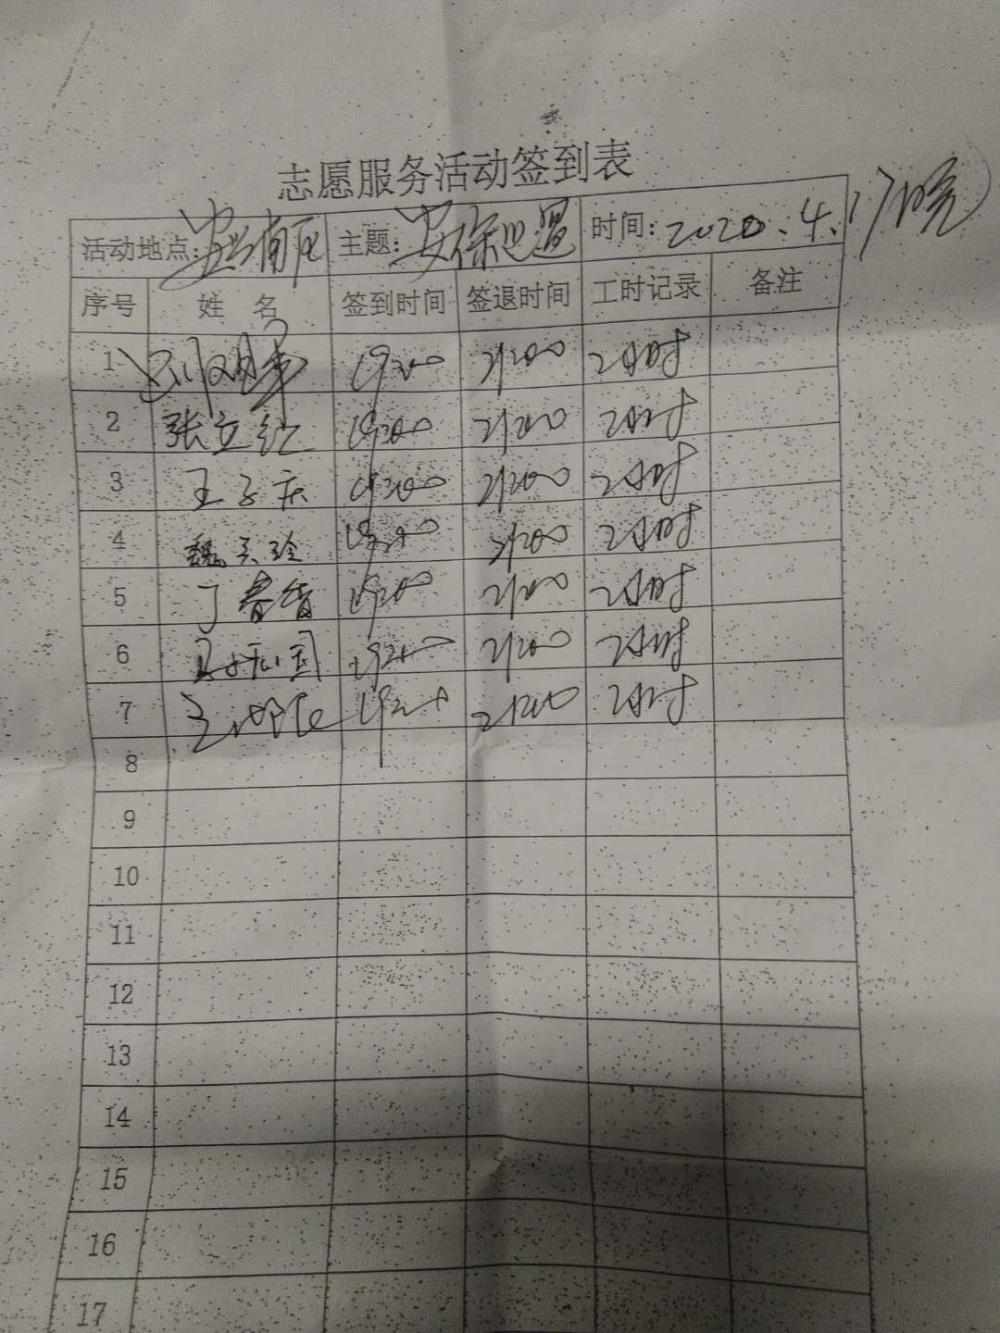 志愿服务活动签到表
活动地点: 南区 主题: 安保巡逻 时间: 2020.4.17(晚)
序号 姓 名 签到时间 签退时间 工时记录 备注
1 19:00 21:00 2小时
2 张立红 19:00 21:00 2小时
3 王子庆 19:00 21:00 2小时
4 魏 玲 19:00 21:00 2小时
5 丁春香 19:00 21:00 2小时
6 19:00 21:00 2小时
7 19:00 21:00 2小时
8
9
10
11
12
13
14
15
16
17